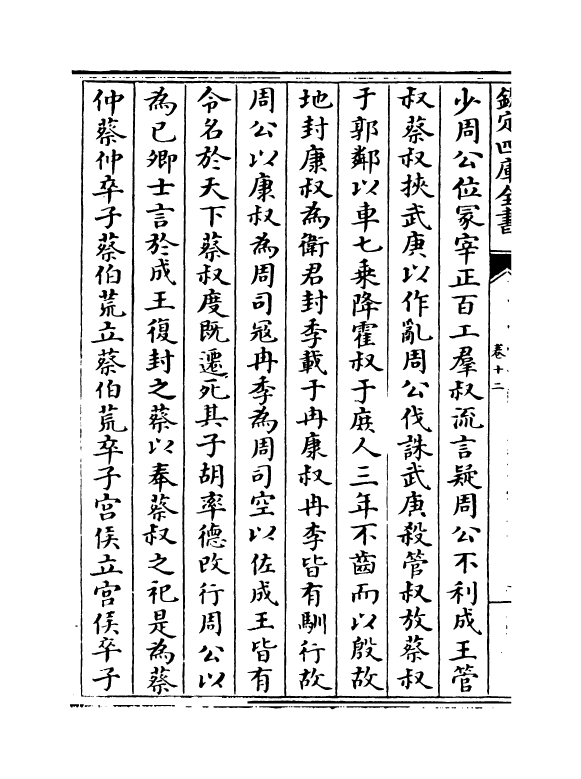 欽定四庫全書
卷十二
少周公位冢宰正百工羣叔流言疑周公不利成王管
叔蔡叔挾武庚以作亂周公伐誅武庚殺管叔放蔡叔
于郭鄰以車七乘降霍叔于庶人三年不齒而以殷故
地封康叔為衛君封季載于冉康叔冉季皆有馴行故
周公以康叔為周司冦冉季為周司空以佐成王皆有
令名於天下蔡叔度既遷死其子胡率德改行周公以
為已卿士言於成王復封之蔡以奉蔡叔之祀是為蔡
仲蔡仲卒子蔡伯荒立蔡伯荒卒子宮侯立宮侯卒子